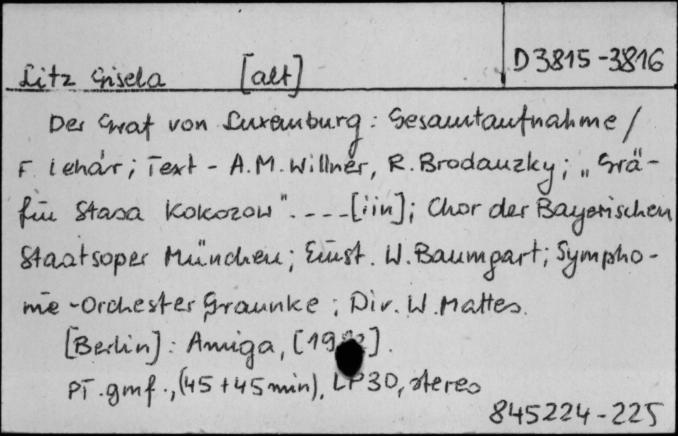 D 3815-3816
Litz Gisela [alt]
Der Graf von Luxemburg: Gesamtaufnahme/
F. Lehár; Text - A.M. Willner, R. Brodanzky; „Grä-
fin Stasa Kokozow".----[iin]; Chor der Bayerischen
Staatsoper München; Einst. W. Baumgart; Sympho-
nie-Orchester Graunke; Dir. W. Mattes.
[Berlin]: Amiga, [19].
PT. gmf., (45+45min), LP30, stereo
845224-225